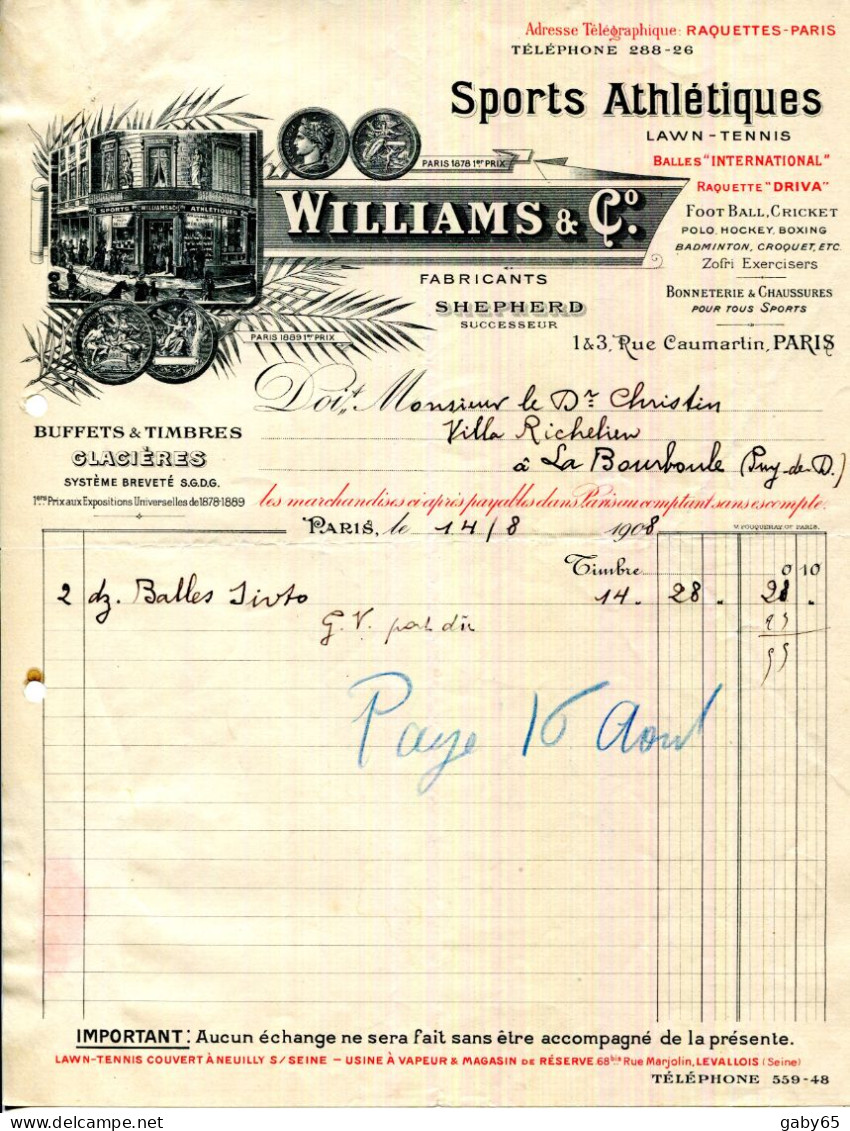 Adresse Télégraphique: RAQUETTES-PARIS
TÉLÉPHONE 288-26
Sports Athlétiques
LAWN-TENNIS
BALLES "INTERNATIONAL"
RAQUETTE "DRIVA"
FOOT BALL, CRICKET
POLO, HOCKEY, BOXING
BADMINTON, CROQUET, ETC.
Zofri Exercisers
BONNETERIE & CHAUSSURES
POUR TOUS SPORTS
PARIS 1878 1er PRIX
SPORTS WILLIAMS & Co ATHLÉTIQUES
WILLIAMS & Co.
FABRICANTS
SHEPHERD
SUCCESSEUR
PARIS 1889 1er PRIX
1 & 3, Rue Caumartin, PARIS
Doit Monsieur le Dr Christin
Villa Richelieu
à La Bourboule (Puy-de-D.)
BUFFETS & TIMBRES
GLACIÈRES
SYSTÈME BREVETÉ S.G.D.G.
1ers Prix aux Expositions Universelles de 1878-1889
les marchandises ci après payables dans Paris au comptant sans escompte.
PARIS, le 14/8 1908
V. FOUQUERAY, Gr PARIS.
Timbre 0 10
2 dz. Balles 14. 28. 28.
G.V. port dû
Paye 16 Aout
IMPORTANT: Aucun échange ne sera fait sans être accompagné de la présente.
LAWN-TENNIS COUVERT À NEUILLY S/SEINE - USINE À VAPEUR & MAGASIN DE RÉSERVE 68bis Rue Marjolin, LEVALLOIS (Seine)
TÉLÉPHONE 559-48
gaby65